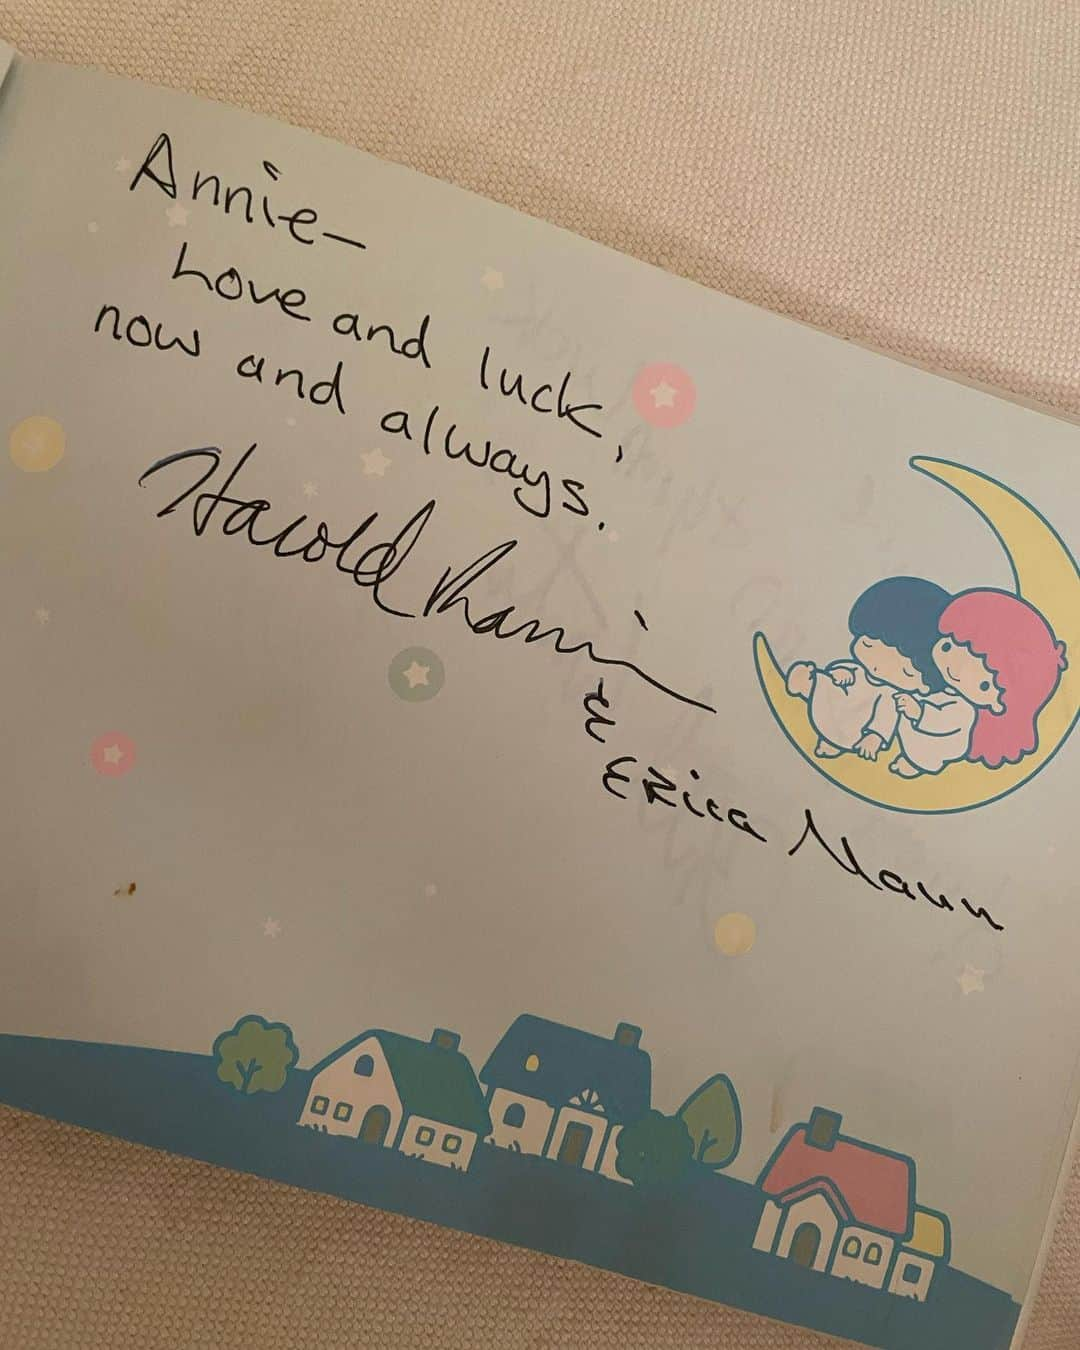 Annie—
Love and luck,
now and always.
Harold Ramis
&
Erica Mann